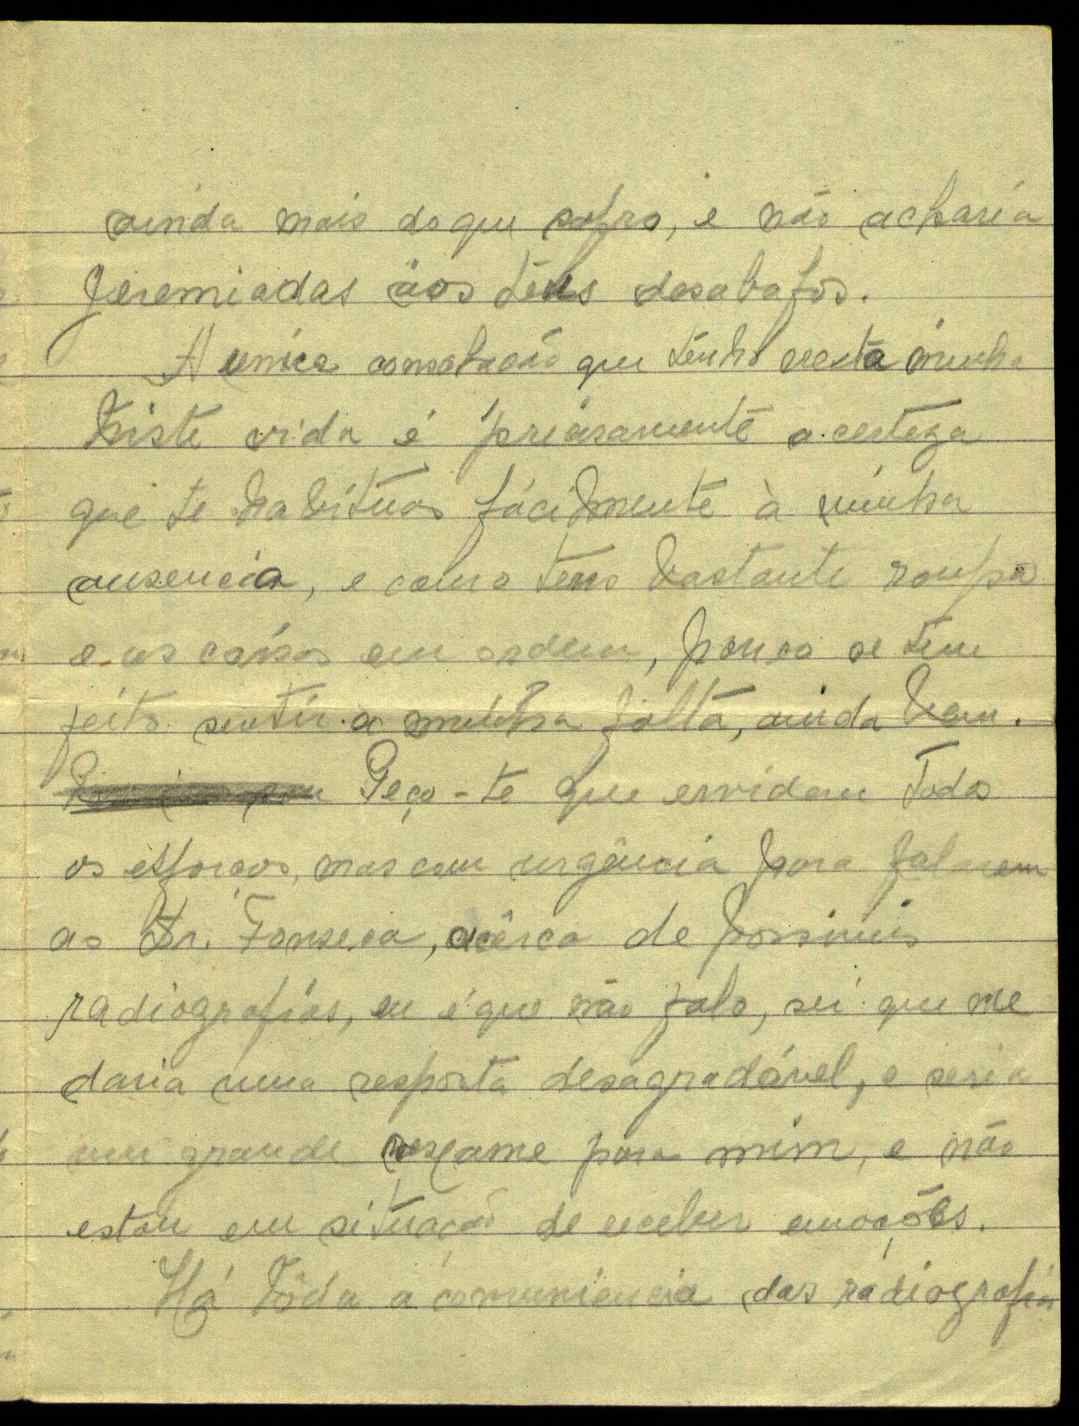 ainda mais do que sofro, e não acharia
Jeremiadas áos têus desabafos.
A unica consolação que tênho nesta minha
triste vida é precisamente a certeza
que te habítuas fácilmente à minha
ausencia, e como tens bastante roupa
e as coisas em ordem, pouco se têm
feito sentir a minha falta, ainda bem.
Peço-te que envidem todos
os esforços, mas com urgência para falarem
ao Dr. Fonseca, acêrca de possiveis
radiografias, eu é que não falo, sei que me
daria uma resposta desagradável, e seria
um grande vexame para mim, e não
estou em situação de receber emoções.
Há tôda a conveniencia das radiografias